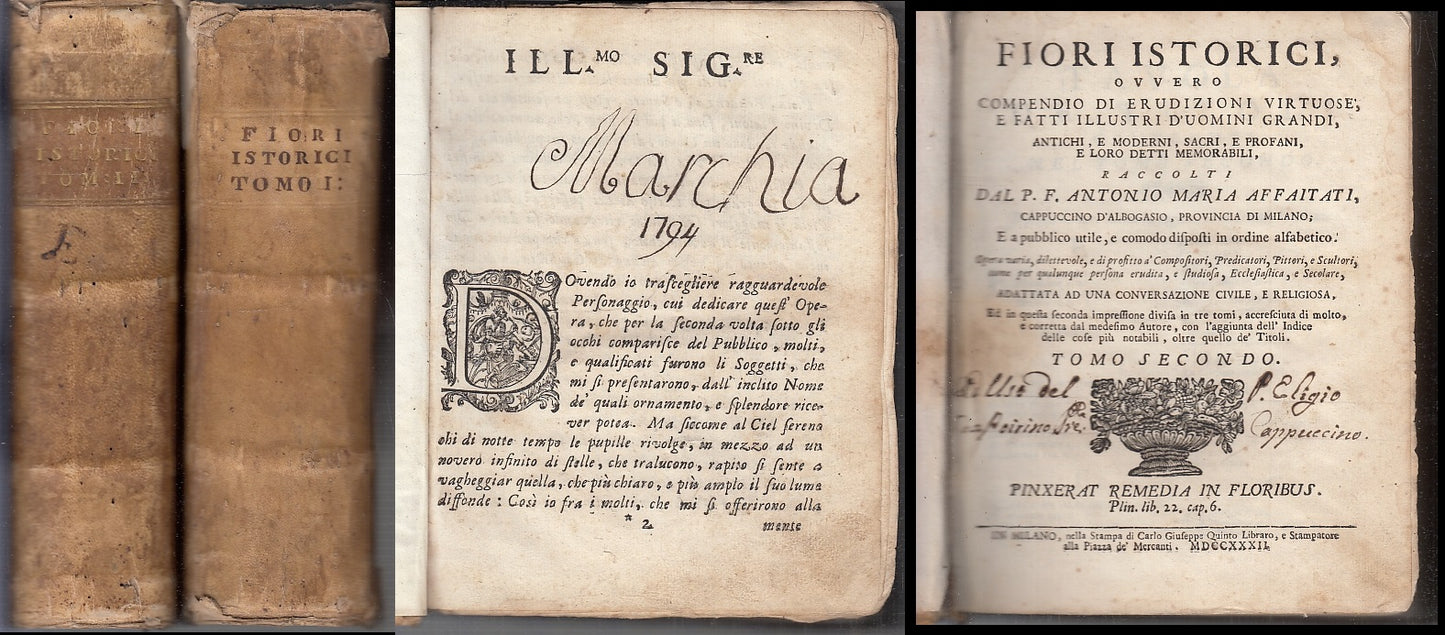 FIORI
ISTORICI
TOM: II
FIORI
ISTORICI
TOMO I:
ILL.MO SIG.RE
Marchia
1794
DOvendo io trascegliere ragguardevole
Personaggio, cui dedicare quest' Ope-
ra, che per la seconda volta sotto gli
occhi comparisce del Pubblico, molti,
e qualificati furono li Soggetti, che
mi si presentarono, dall' inclito Nome
de' quali ornamento, e splendore rice-
ver potea. Ma siccome al Ciel sereno
chi di notte tempo le pupille rivolge, in mezzo ad un
novero infinito di stelle, che tralucono, rapito si sente a
vagheggiar quella, che più chiaro, e più amplo il suo lume
diffonde: Così io fra i molti, che mi si offerirono alla
* 2 mente
FIORI ISTORICI,
OVVERO
COMPENDIO DI ERUDIZIONI VIRTUOSE,
E FATTI ILLUSTRI D'UOMINI GRANDI,
ANTICHI, E MODERNI, SACRI, E PROFANI,
E LORO DETTI MEMORABILI,
RACCOLTI
DAL P. F. ANTONIO MARIA AFFAITATI,
CAPPUCCINO D'ALBOGASIO, PROVINCIA DI MILANO;
E a pubblico utile, e comodo disposti in ordine alfabetico.
Opera varia, dilettevole, e di profitto a' Compositori, Predicatori, Pittori, e Scultori,
come per qualunque persona erudita, e studiosa, Ecclesiastica, e Secolare,
ADATTATA AD UNA CONVERSAZIONE CIVILE, E RELIGIOSA,
Ed in questa seconda impressione divisa in tre tomi, accresciuta di molto,
e corretta dal medesimo Autore, con l'aggiunta dell' Indice
delle cose più notabili, oltre quello de' Titoli.
TOMO SECONDO.
Uso del P. Eligio
Cappuccino.
PINXERAT REMEDIA IN FLORIBUS.
Plin. lib. 22. cap. 6.
IN MILANO, nella Stampa di Carlo Giuseppe Quinto Libraro, e Stampatore
alla Piazza de' Mercanti. MDCCXXXII.